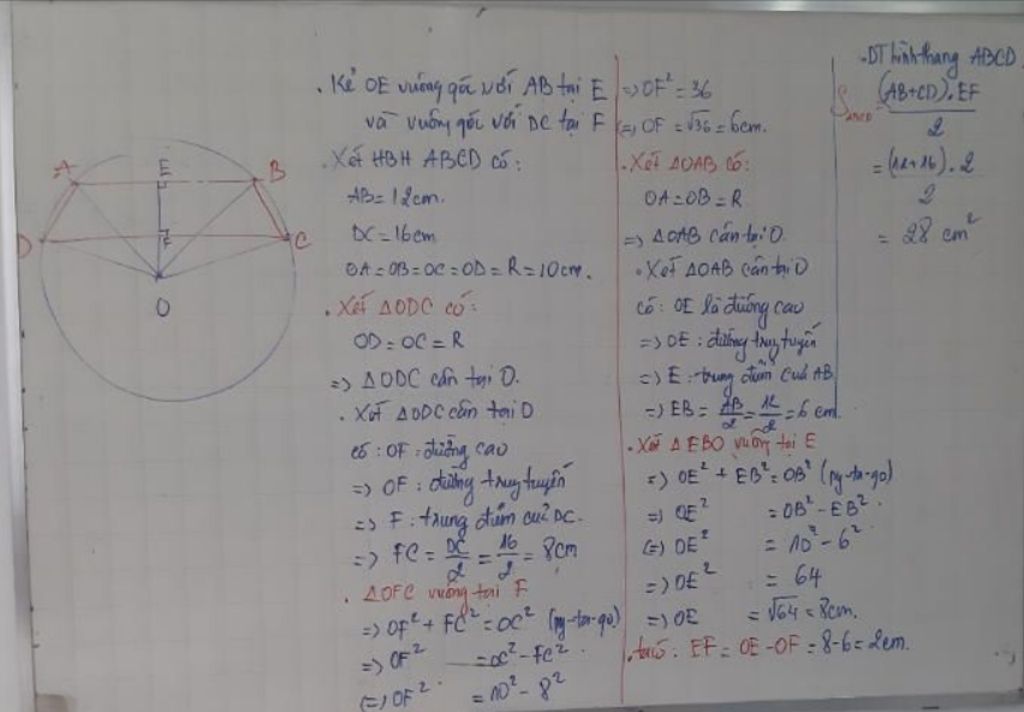 A
E
B
D
F
C
O
. Kẻ OE vuông góc với AB tại E
và vuông góc với DC tại F
. Xét HBH ABCD có:
AB = 12cm.
DC = 16cm
OA = OB = OC = OD = R = 10cm.
. Xét △ODC có:
OD = OC = R
=> △ODC cân tại O.
. Xét △ODC cân tại O
có : OF = đường cao
=> OF : đường trung tuyến
=> F : trung điểm của DC.
=> FC = DC/2 = 16/2 = 8cm
. △OFC vuông tại F
=> OF² + FC² = OC² (py-ta-go)
=> OF² = OC² - FC²
(=) OF² = 10² - 8²
=> OF² = 36
(=) OF = √36 = 6cm.
. Xét △OAB có:
OA = OB = R
=> △OAB cân tại O.
. Xét △OAB cân tại O
có: OE là đường cao
=> OE : đường trung tuyến
=> E : trung điểm của AB
=> EB = AB/2 = 12/2 = 6 cm.
. Xét △EBO vuông tại E
=> OE² + EB² = OB² (py-ta-go)
=> OE² = OB² - EB²
(=) OE² = 10² - 6²
=> OE² = 64
=> OE = √64 = 8cm.
. ta có : EF = OE - OF = 8 - 6 = 2cm.
. DT hình thang ABCD
S ABCD = (AB + CD) . EF / 2
= (12 + 16) . 2 / 2
= 28 cm²